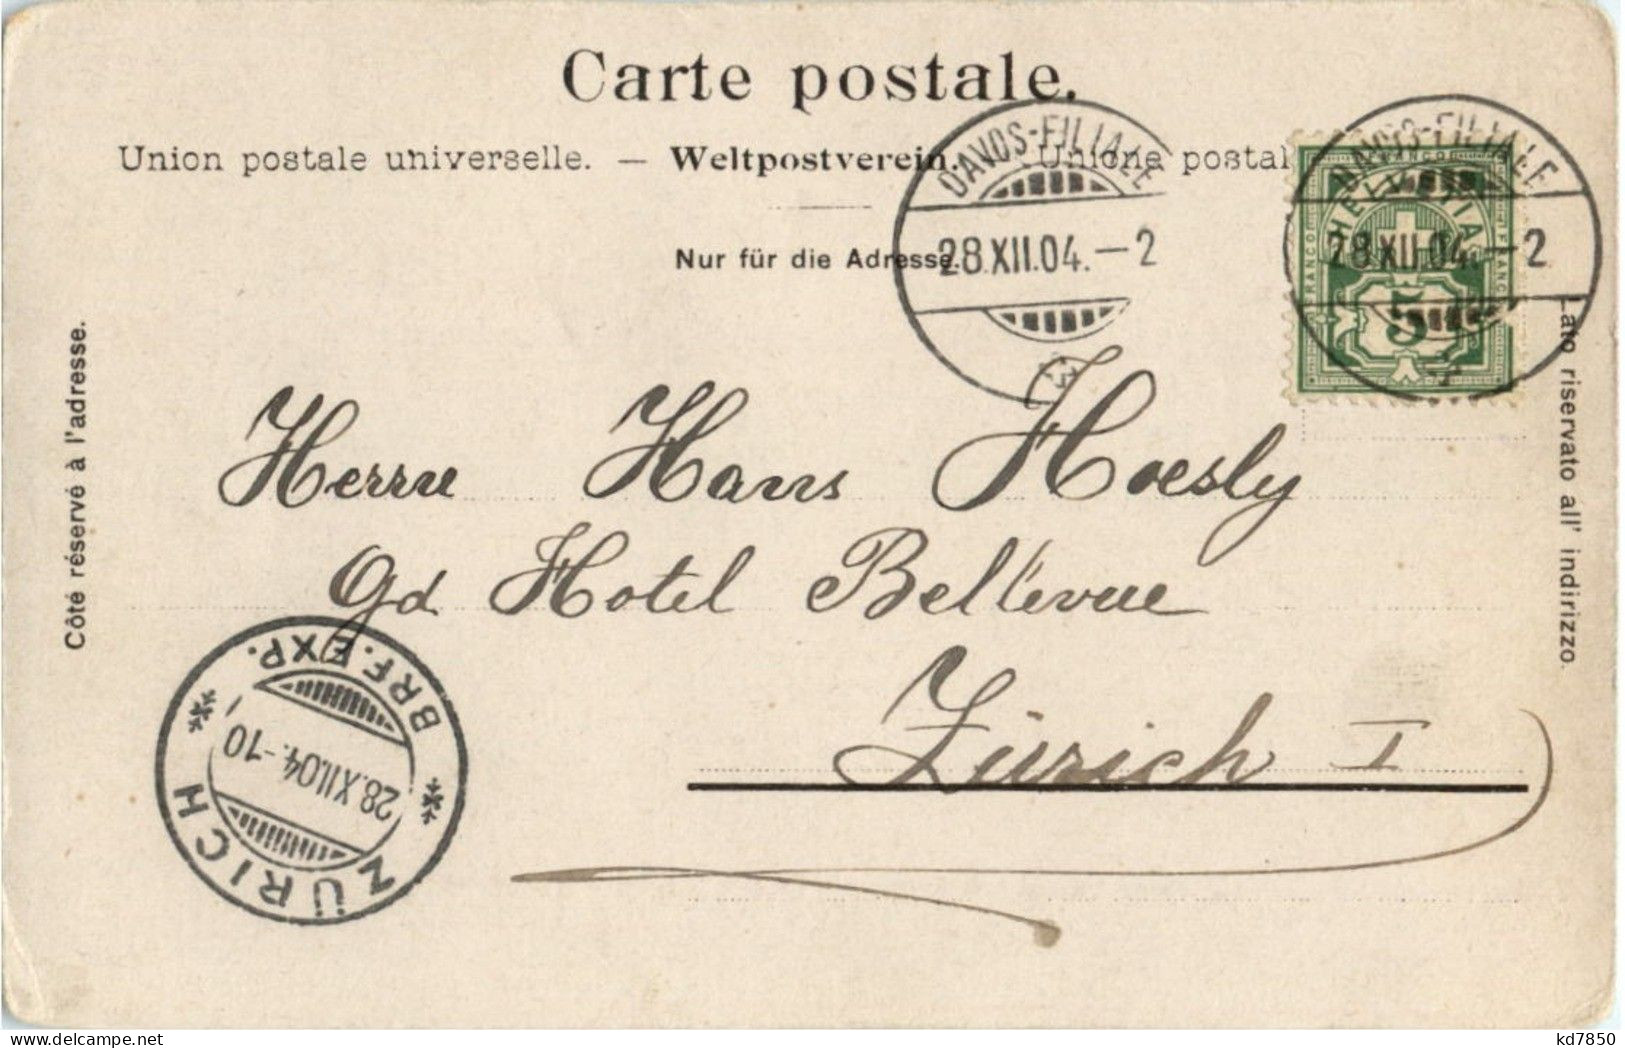 Carte postale.
Union postale universelle. — Weltpostverein. — Unione postal
Nur für die Adresse.
DAVOS-FILIALE
28.XII.04.–2
DAVOS-FILIALE
28.XII.04.–2
HELVETIA
FRANCO
5
Côté réservé à l'adresse.
Lato riservato all' indirizzo.
Herrn Hans Hoesly
Gd Hotel Bellevue
Zürich I
ZÜRICH
BRF. EXP.
28.XII.04.–10
kd7850